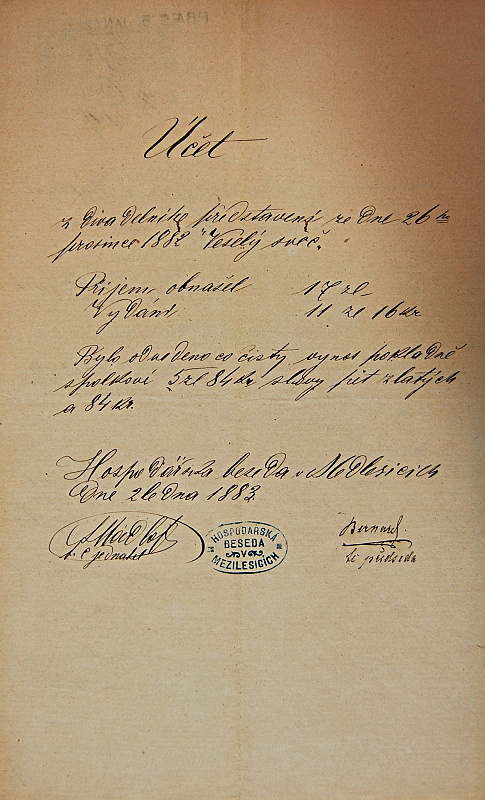 Účet
z divadelního představení ze dne 26ho
prosince 1882 "Veselý švec."
Příjem obnášel 17 zl
Vydání 11 zl 16 kr
Bylo odvedeno co čistý výnos pokladně
spolkové 5 zl 84 kr slovy pět zlatých
a 84 kr.
Hospodářská beseda v Mezilesicích
Dne 26 dna 1883.
t. č. jednatel
HOSPODÁŘSKÁ
BESEDA
V
MEZILESICÍCH
Bernard
tč předseda